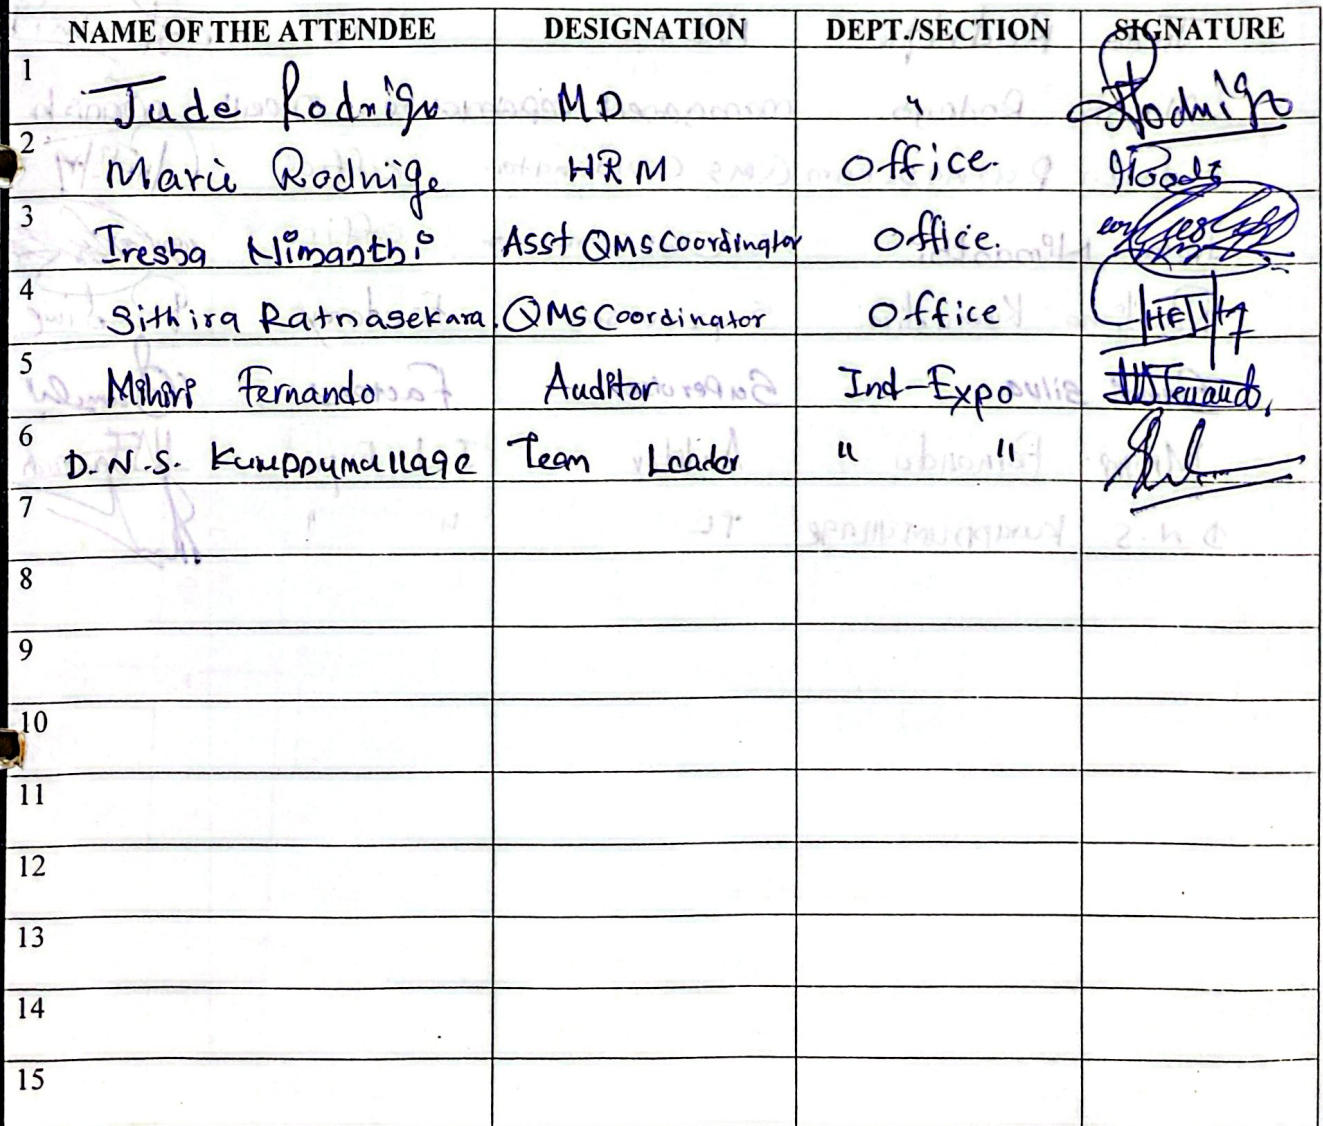 NAME OF THE ATTENDEE DESIGNATION DEPT./SECTION SIGNATURE
1 Jude Rodrigo MD " Rodrigo
2 Marie Rodrigo HRM Office.
3 Iresha Nimanthi Asst QMS Coordinator Office.
4 Sithira Ratnasekara. QMS Coordinator Office
5 Mihiri Fernando Auditor Ind-Expo
6 D.N.S. Kumppumallage Team Leader " "
7
8
9
10
11
12
13
14
15